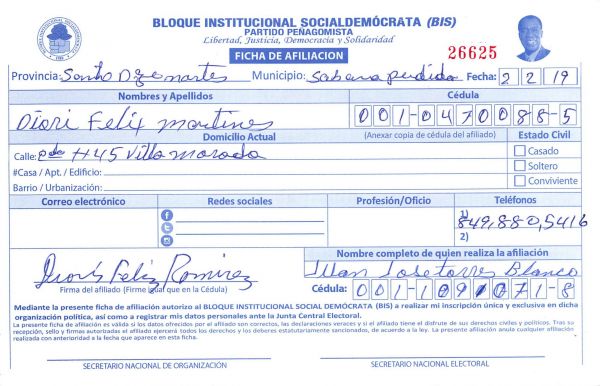 BLOQUE INSTITUCIONAL SOCIALDEMÓCRATA (BIS)
PARTIDO PEÑAGOMISTA
Libertad, Justicia, Democracia y Solidaridad
FICHA DE AFILIACION
26625
Provincia: Santo Municipio: Sabana perdida Fecha: 2 2 19
Nombres y Apellidos Cédula
Diori Feliz martines 001-0470088-5
Domicilio Actual (Anexar copia de cédula del afiliado) Estado Civil
Calle: H45 Villa morada Casado
#Casa / Apt. / Edificio: Soltero
Barrio / Urbanización: Conviviente
Correo electrónico Redes sociales Profesión/Oficio Teléfonos
1) 849,880,5416
2)
Nombre completo de quien realiza la afiliación
Feliz Ramirez Juan Jose torres Blanco
Firma del afiliado (Firme igual que en la Cédula) Cédula: 001-109 071-8
Mediante la presente ficha de afiliación autorizo al BLOQUE INSTITUCIONAL SOCIAL DEMÓCRATA (BIS) a realizar mi inscripción única y exclusiva en dicha
organización política, así como a registrar mis datos personales ante la Junta Central Electoral.
La presente ficha de afiliación es válida si los datos ofrecidos por el afiliado son correctos, las declaraciones veraces y si el afiliado tiene el disfrute de sus derechos civiles y políticos. Tras su
recepción, sello y firmas autorizadas el afiliado ejercerá todos los derechos y los deberes estatutariamente sancionados, de acuerdo a la ley. La presente afiliación anula cualquier afiliación
realizada con anterioridad a la fecha que aparece en esta ficha.
SECRETARIO NACIONAL DE ORGANIZACIÓN SECRETARIO NACIONAL ELECTORAL